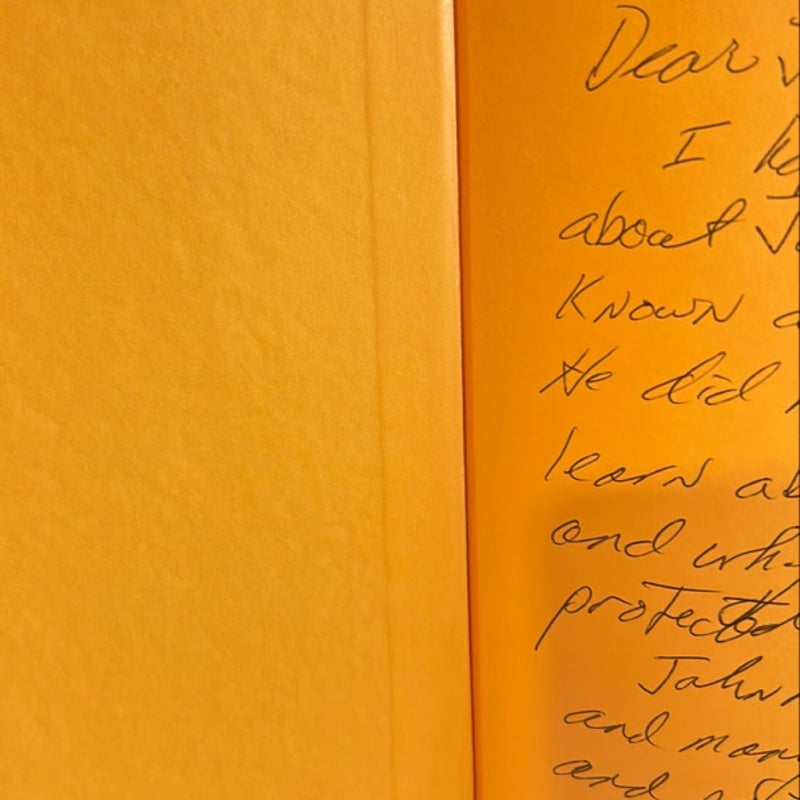 Dear J
I
about J
Known a
He did
learn ab
and wh
protected
John
and man
and